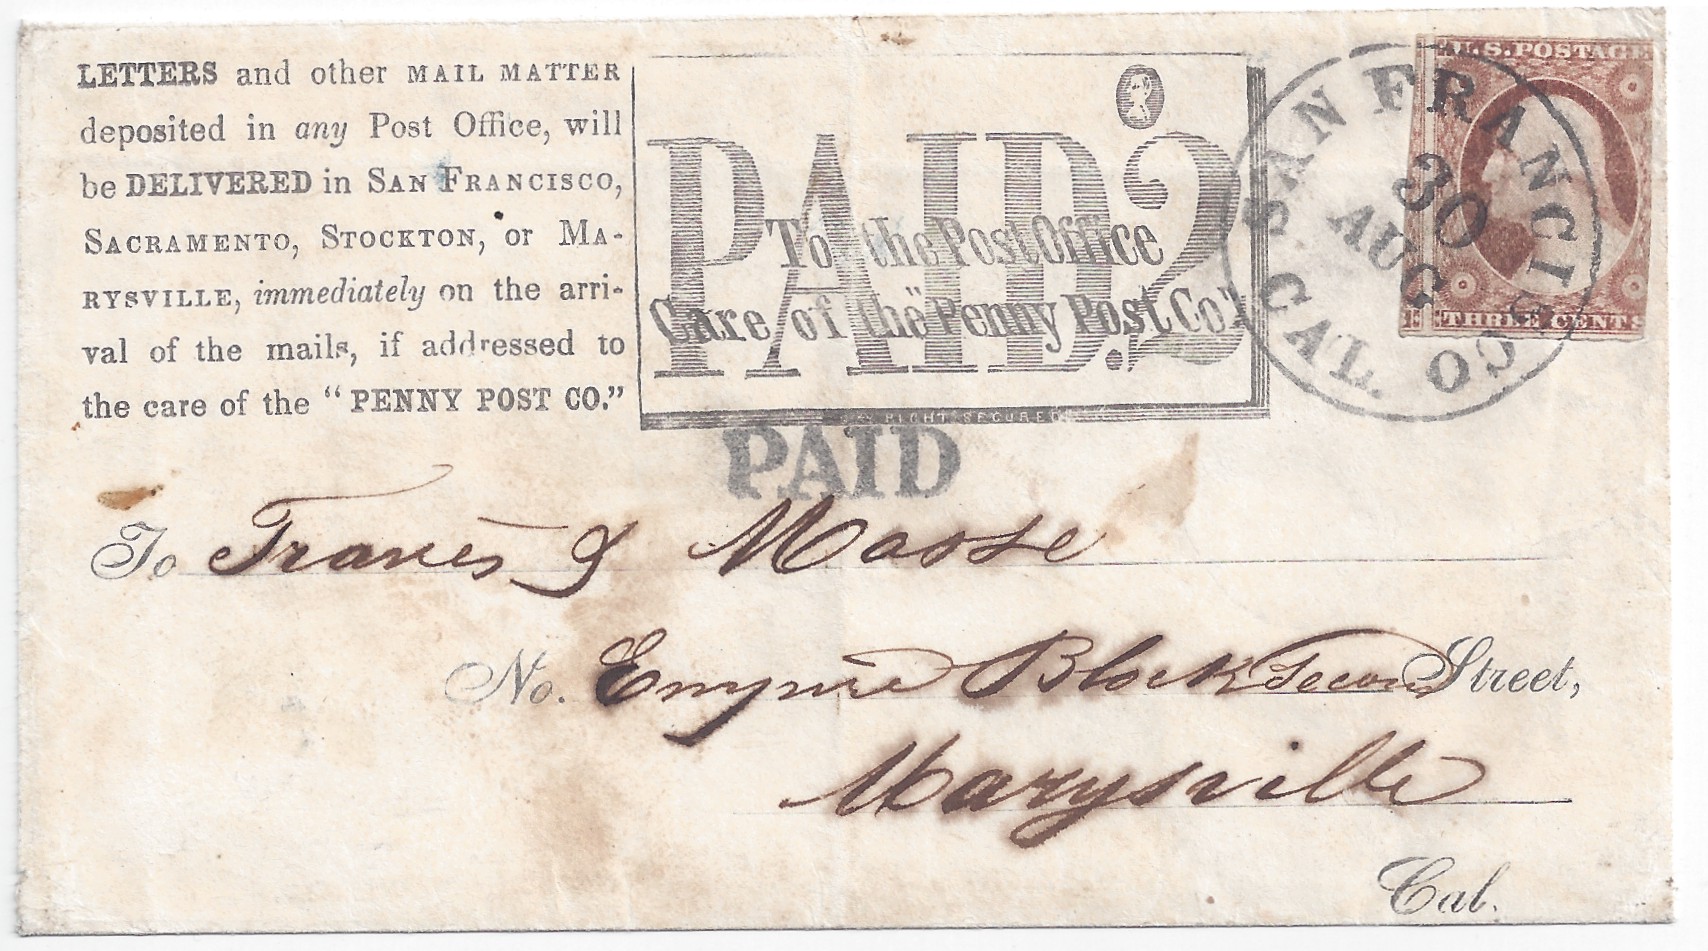 LETTERS and other MAIL MATTER
deposited in any Post Office, will
be DELIVERED in SAN FRANCISCO,
SACRAMENTO, STOCKTON, or MA-
RYSVILLE, immediately on the arri-
val of the mails, if addressed to
the care of the "PENNY POST CO."
PAID.2
To the Post Office
Care of the "Penny Post Co"
RIGHT SECURED
PAID
SAN FRANCISCO
CAL.
30
AUG
CO
U.S. POSTAGE
THREE CENTS
To Traves & Mosse
No. Empire Block Second Street,
Marysville
Cal.